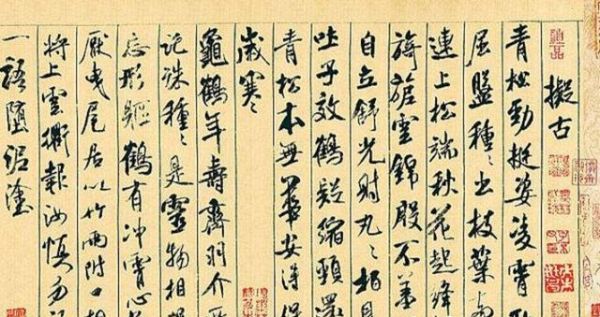 擬古
青松勁挺姿凌霄
屈盤種〻出枝葉
連上松端秋花起絳
旖旎雲錦殷不羞
自立舒光射丸〻柏見
吐子效鶴疑縮頸還
青松本無華安得保
歲寒
龜鶴年壽齊羽介所
託殊種〻是靈物相
忘形軀鶴有沖霄心
厭曳尾居以竹兩附口相
將上雲衢報汝慎勿
一語墮泥塗